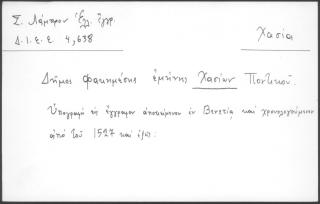 Σ. Λάμπρου Ἑλλ. ἔγγρ.
Δ.Ι.Ε.Ε. 4,638
Χασία
Δῆμος φακημέσης ἐμίνης Χασίων Ποντικοῦ.
Ὑπογραφὴ εἰς ἔγγραφον ἀποκείμενον ἐν Βενετίᾳ καὶ χρονολογούμενον
ἀπὸ τοῦ 1527 καὶ ἑξῆς: